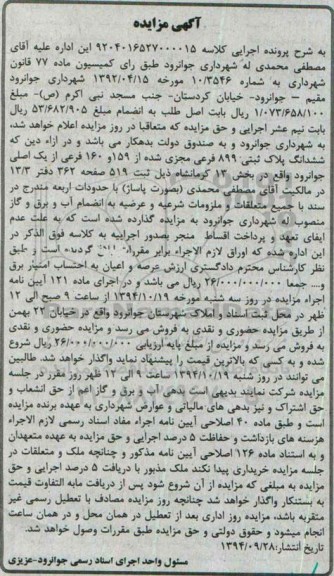 آگهی مزایده
به شرح پرونده اجرایی کلاسه ۹۲۰۴۰۱۶۵۲۷۰۰۰۰۱۵ این اداره علیه آقای
مصطفی محمدی له شهرداری جوانرود طبق رای کمیسیون ماده ۷۷ قانون
شهرداری به شماره ۱۰/۳۵۴۶ مورخه ۱۳۹۲/۰۴/۱۵ شهرداری جوانرود
مقیم – جوانرود- خیابان کردستان- جنب مسجد نبی اکرم (ص)- مبلغ
۱/۰۷۳/۶۵۸/۱۰۰ ریال بابت اصل طلب به انضمام مبلغ ۵۳/۶۸۲/۹۰۵ ریال
بابت نیم عشر اجرایی و حق مزایده که متعاقبا در روز مزایده اعلام خواهد شد،
به شهرداری جوانرود و به صندوق دولت بدهکار می باشد و در ازاء دین که
ششدانگ پلاک ثبتی ۸۹۹ فرعی مجزی شده از ۱۵۹و ۱۶۰ فرعی از یک اصلی
جوانرود واقع در بخش ۱۳ کرمانشاه ذیل ثبت ۵۱۹ صفحه ۳۶۲ دفتر ۱۳/۳
در مالکیت آقای مصطفی محمدی (بصورت پاساژ) با حدودات اربعه مندرج در
سند با جمیع متعلقات و ملزومات شرعیه و عرضیه به انضمام آب و برق و گاز
منصوب له شهرداری جوانرود به مزایده گذارده شده است که به علت عدم
ایفای تعهد و پرداخت اقساط منجر بصدور اجراییه به کلاسه فوق الذکر در
این اداره شده که اوراق لازم الاجراء برابر مقررات گردیده است و طبق
نظر کارشناس محترم دادگستری ارزش عرصه و اعیان به احتساب امتیاز برق
و.... جمعا ۲۶/۰۰۰/۰۰۰/۰۰۰ ریال می باشد و در اجرای ماده ۱۲۱ آیین نامه
اجراء مزایده در روز سه شنبه مورخه ۱۳۹۴/۱۰/۱۹ از ساعت ۹ صبح الی ۱۲
ظهر در محل ثبت اسناد و املاک شهرستان جوانرود واقع در خیابان ۲۲ بهمن
از طریق مزایده حضوری و نقدی به فروش می رسد و مزایده حضوری و نقدی
به فروش می رسد و مزایده از مبلغ پایه ارزیابی ۲۶/۰۰۰/۰۰۰/۰۰۰ ریال شروع
شده و به کسی که بالاترین قیمت را پیشنهاد نماید واگذار خواهد شد. طالبین
می توانند در روز شنبه ۱۳۹۴/۱۰/۱۹ ساعت ۹ الی ۱۲ ظهر روز مقرر در جلسه
مزایده شرکت نمایند بدیهی است بدهی آب و برق و گاز اعم از حق انشعاب و
حق اشتراک و نیز بدهی های مالیاتی و عوارض شهرداری به عهده برنده مزایده
است و طبق ماده ۴۰ اصلاحی آیین نامه اجراء مفاد اسناد رسمی لازم الاجراء
هزینه های بازداشت و حفاظت ۵ درصد اجرایی و حق مزایده به عهده متعهدان
و به استناد ماده ۱۲۶ اصلاحی آیین نامه مذکور و چنانچه ملک و متعلقات در
جلسه مزایده خریداری پیدا نکند ملک مذبور با دریافت ۵ درصد اجرایی و حق
مزایده به مبلغی که مزایده از آن شروع شود پس از دریافت مابه التفاوت قیمت
به بستنکار واگذار خواهد شد چنانچه روز مزایده مصادف با تعطیل رسمی غیر
مترقبه باشد، مزایده روز اداری بعد از تعطیل در همان محل و در همان ساعت
انجام میشود و حقوق دولتی و حق مزایده طبق مقررات وصول خواهد شد.
تاریخ انتشار:۱۳۹۴/۰۹/۲۸
مسئول واحد اجرای اسناد رسمی جوانرود-عزیزی